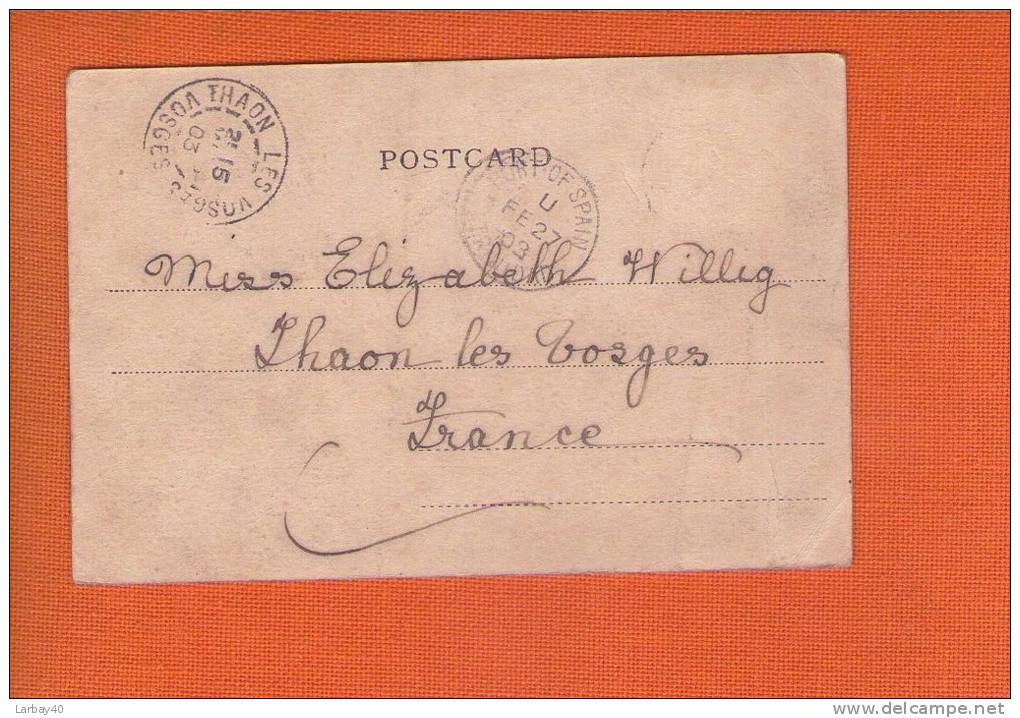 THAON LES VOSGES VOSGES
15
03
POSTCARD
PORT OF SPAIN
U
FE 27
03
Miss Elizabeth Willig
Thaon les Vosges
France
Larbay40
www.delcampe.net